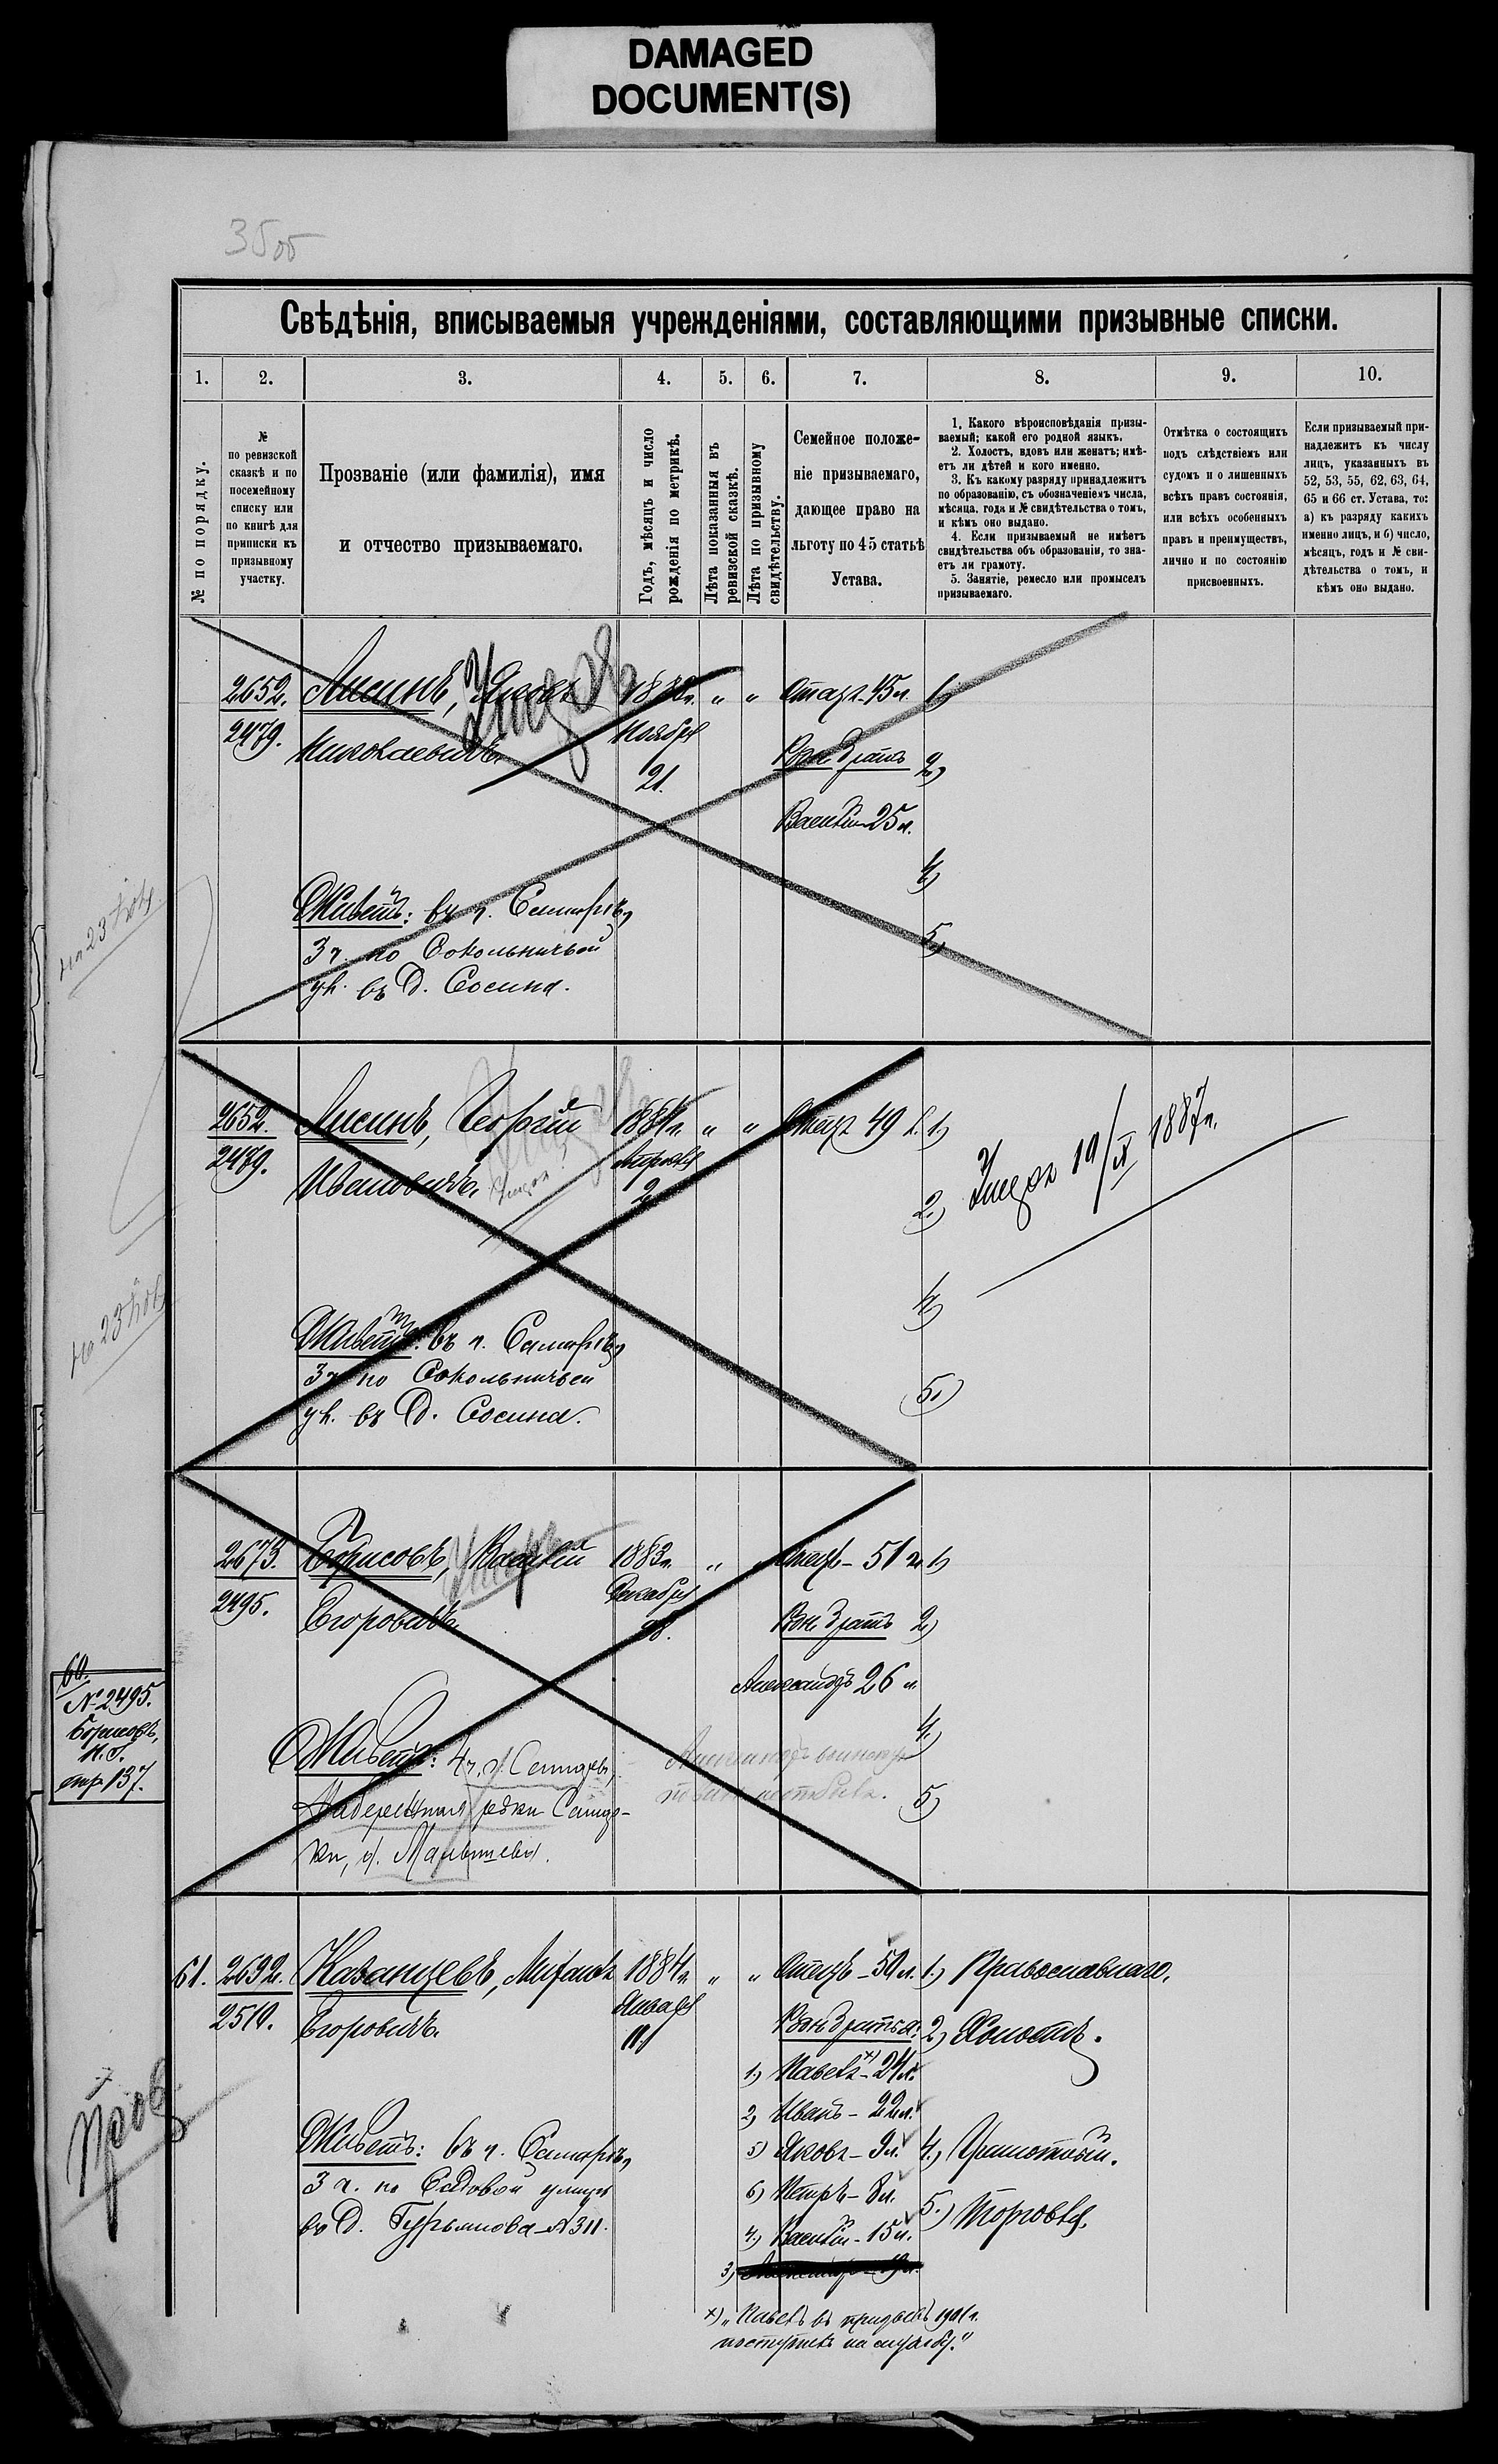 DAMAGED
DOCUMENT(S)
35об
Свѣдѣнія, вписываемыя учрежденіями, составляющими призывные списки.
1.
2.
3.
4.
5.
6.
7.
8.
9.
10.
№ по порядку.
№
по ревизской
сказкѣ и по
посемейному
списку или
по книгѣ для
приписки къ
призывному
участку.
Прозваніе (или фамилія), имя
и отчество призываемаго.
Годъ, мѣсяцъ и число
рожденія по метрикѣ.
Лѣта показанныя въ
ревизской сказкѣ.
Лѣта по призывному
свидѣтельству.
Семейное положе-
ніе призываемаго,
дающее право на
льготу по 45 статьѣ
Устава.
1. Какого вѣроисповѣданія призы-
ваемый; какой его родной языкъ.
2. Холостъ, вдовъ или женатъ; имѣ-
етъ ли дѣтей и кого именно.
3. Къ какому разряду принадлежитъ
по образованію, съ обозначеніемъ числа,
мѣсяца, года и № свидѣтельства о томъ,
и кѣмъ оно выдано.
4. Если призываемый не имѣетъ
свидѣтельства объ образованіи, то зна-
етъ ли грамоту.
5. Занятіе, ремесло или промыселъ
призываемаго.
Отмѣтка о состоящихъ
подъ слѣдствіемъ или
судомъ и о лишенныхъ
всѣхъ правъ состоянія,
или всѣхъ особенныхъ
правъ и преимуществъ,
лично и по состоянію
присвоенныхъ.
Если призываемый при-
надлежитъ къ числу
лицъ, указанныхъ въ
52, 53, 55, 62, 63, 64,
65 и 66 ст. Устава, то:
а) къ разряду какихъ
именно лицъ, и б) число,
мѣсяцъ, годъ и № сви-
дѣтельства о томъ, и
кѣмъ оно выдано.
2652. Лисинъ, " " 45л. 1)
2479. Николаевичъ. Ноября
21.
Род. братъ 2)
Василій 25 л.
4)
Живетъ: въ г. Самарѣ,
3 ч. по Сокольничьей
ул. въ д. Сосина.
5)
2652. Лисинъ, Георгій 1884г. " " Отецъ 49 л. 1)
2479. Ивановичъ. Апрѣля
2
2.) Умеръ 19/IX 1887г.
4)
Живетъ: въ г. Самарѣ,
3ч по Сокольничьей
ул. въ д. Сосина.
5.)
2673. Борисовъ, Василій 1883г. " Отецъ - 51 г. 1)
2495. Егоровичъ. Декабря
Род. братъ 2)
Александръ 26 л.
60.
№ 2495.
Борисовъ,
стр 137.
4.)
Живетъ: 4 ч. г. Самары,
Набережная рѣки Самар-
ки, д. Малышева.
5)
61. 2692. Казанцевъ, Михаилъ 1884г. " " Отецъ - 50 л. 1.) Православнаго.
2510. Егоровичъ. Января
11.
Род. братья: 2.) Холостъ.
1.) Павелъ х) - 24 л.
2.) Иванъ - 22 л.
5) Яковъ - 9 л. 4.) Грамотный.
6) Петръ - 8 л.
4.) Василій - 15 л. 5.) Торговля.
3)
Живетъ: въ г. Самарѣ,
3 ч. по Садовой улицѣ
въ д. Гурьянова № 311.
х) „Павелъ въ призывъ 1901 г.
поступилъ на службу."